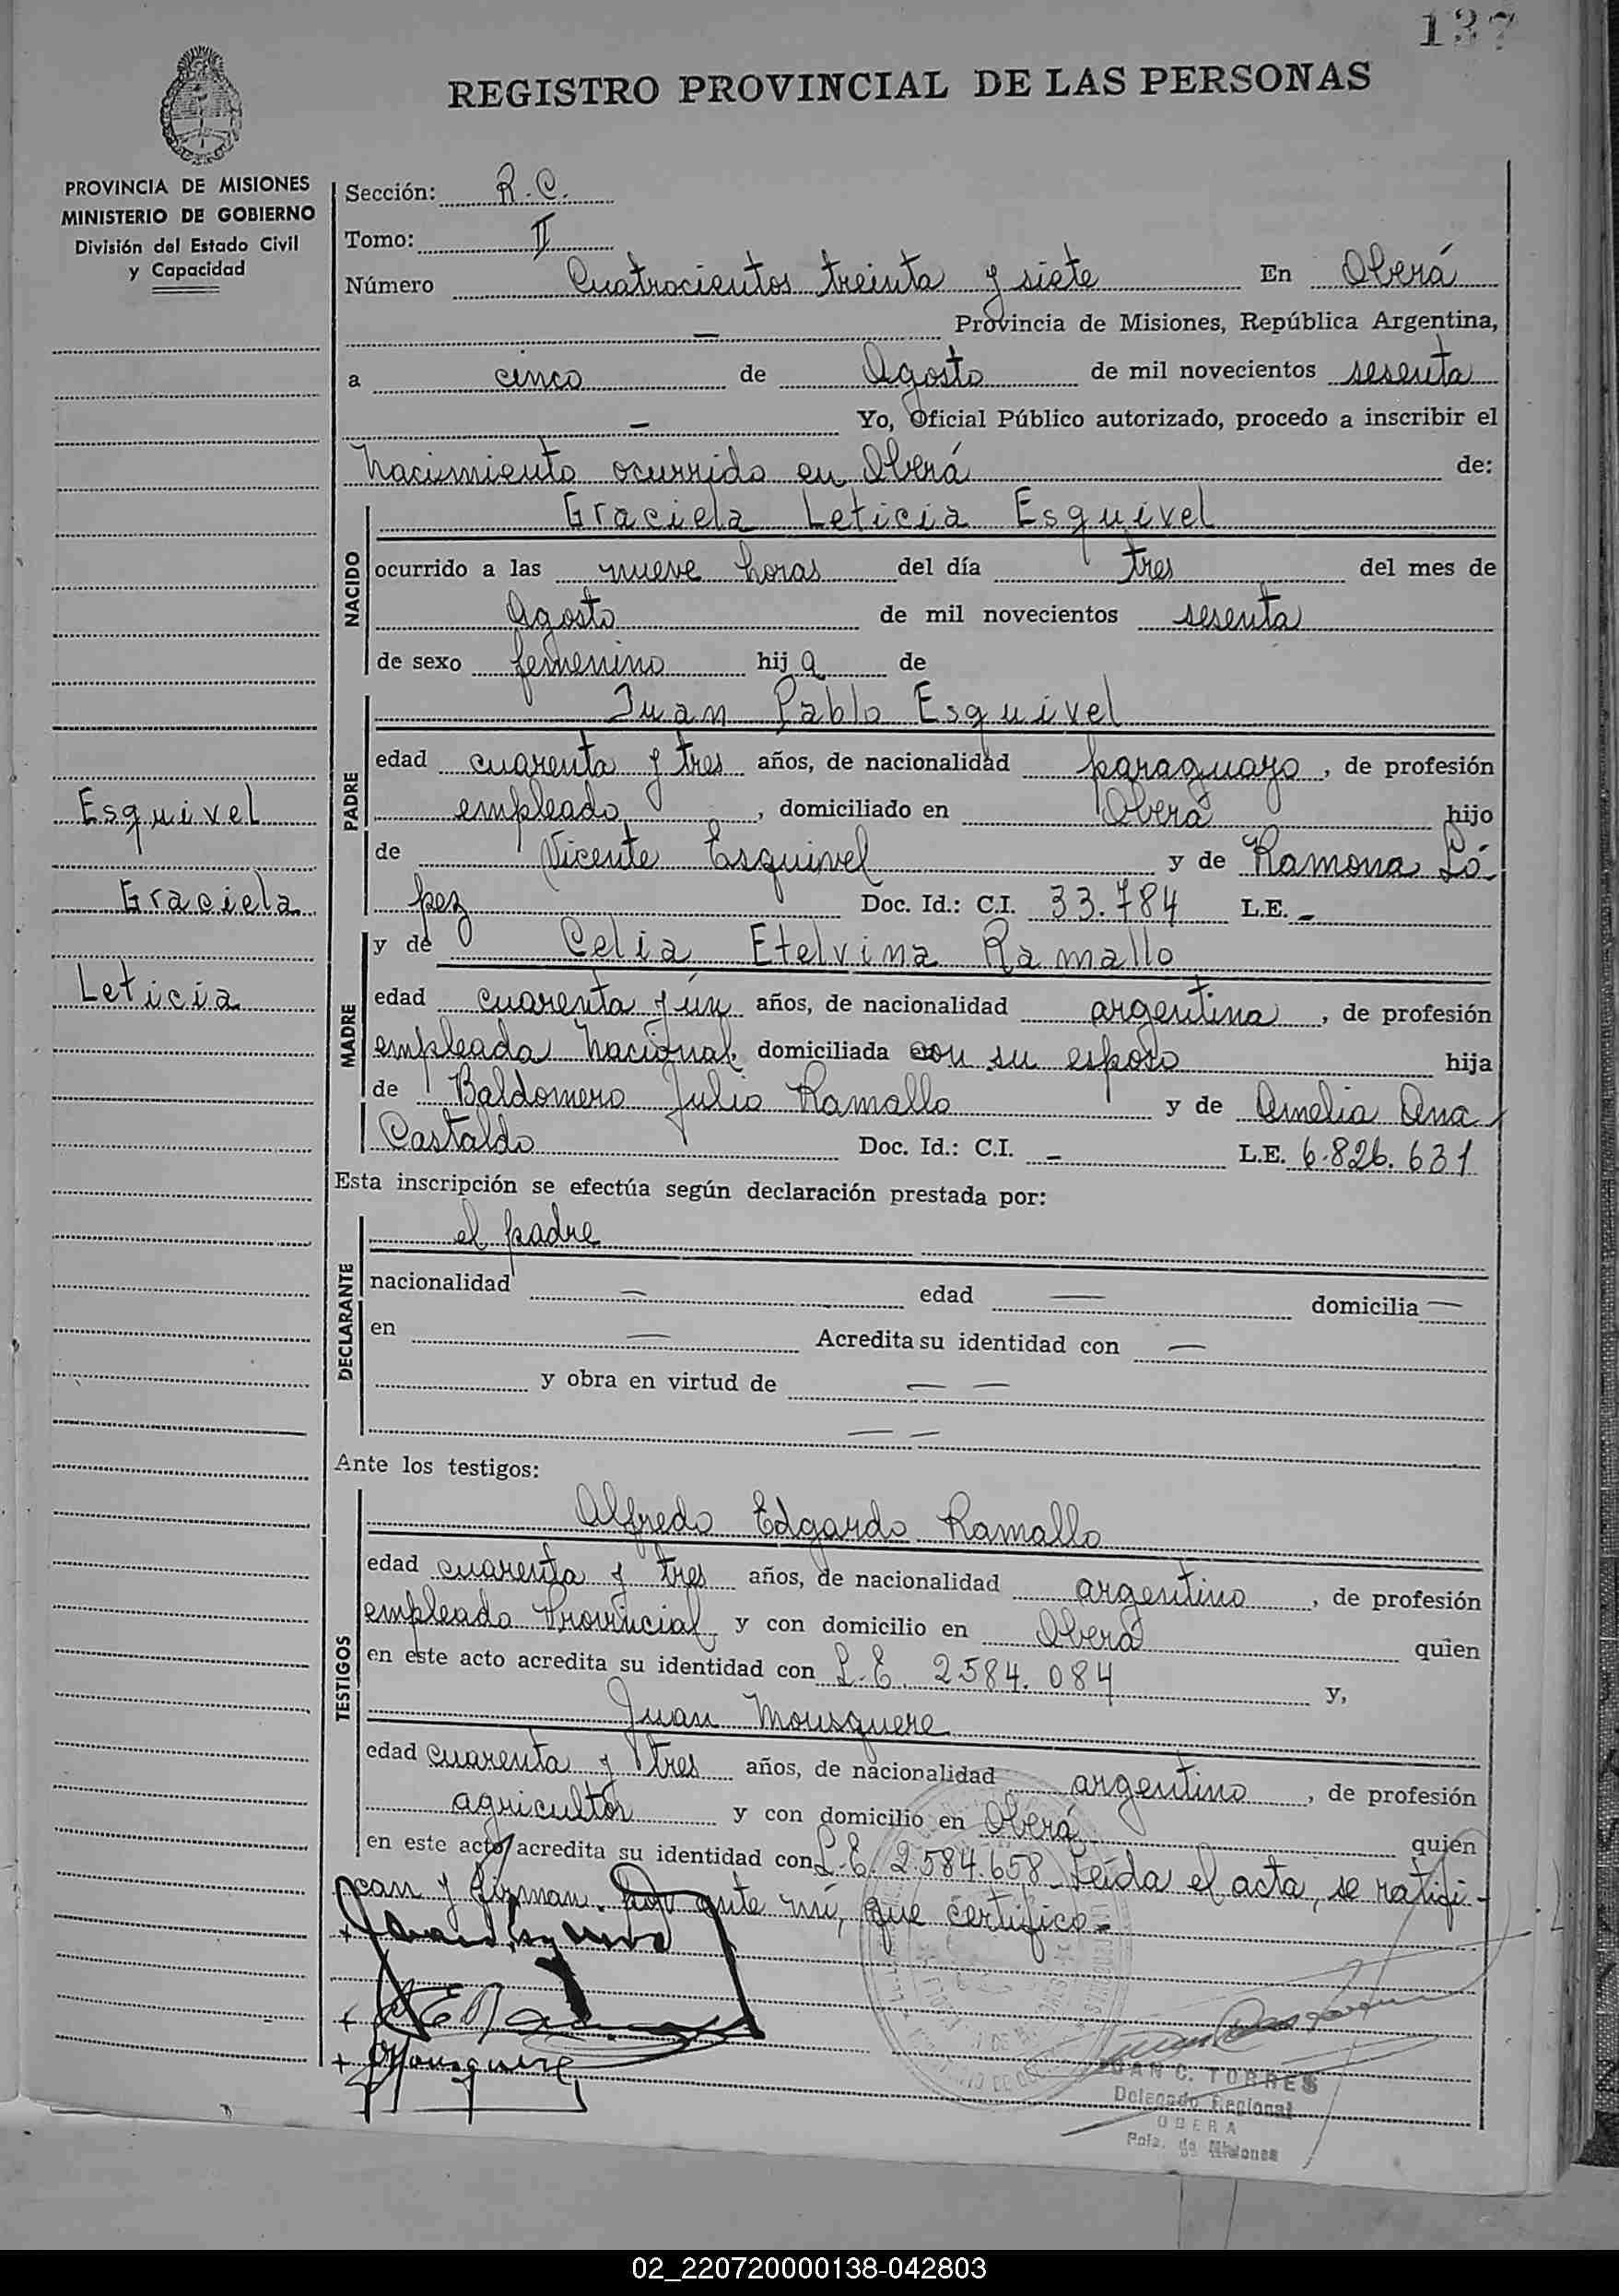 137
REGISTRO PROVINCIAL DE LAS PERSONAS
PROVINCIA DE MISIONES
MINISTERIO DE GOBIERNO
División del Estado Civil
y Capacidad
Sección: R.C.
Tomo: II
Número Cuatrocientos treinta y siete En Oberá
— Provincia de Misiones, República Argentina,
a cinco de Agosto de mil novecientos sesenta
— Yo, Oficial Público autorizado, procedo a inscribir el
Nacimiento ocurrido en Oberá de:
NACIDO
Graciela Leticia Esquivel
ocurrido a las nueve horas del día tres del mes de
Agosto de mil novecientos sesenta
de sexo femenino hija de
PADRE
Juan Pablo Esquivel
edad cuarenta y tres años, de nacionalidad paraguayo, de profesión
empleado, domiciliado en Oberá hijo
de Vicente Esquivel y de Ramona Ló-
pez Doc. Id.: C.I. 33.784 L.E. -
Esquivel
Graciela
Leticia
MADRE
y de Celia Etelvina Ramallo
edad cuarenta y un años, de nacionalidad argentina, de profesión
empleada Nacional, domiciliada con su esposo hija
de Baldomero Julio Ramallo y de Amelia Ana
Castaldo Doc. Id.: C.I. - L.E. 6.826.631
Esta inscripción se efectúa según declaración prestada por:
DECLARANTE
el padre
nacionalidad — edad — domicilia —
en — Acredita su identidad con —
y obra en virtud de — —
— —
Ante los testigos:
TESTIGOS
Alfredo Edgardo Ramallo
edad cuarenta y tres años, de nacionalidad argentino, de profesión
empleado Provincial y con domicilio en Oberá quien
en este acto acredita su identidad con L.E. 2584.084 y,
Juan Mousquere
edad cuarenta y tres años, de nacionalidad argentino, de profesión
agricultor y con domicilio en Oberá quien
en este acto acredita su identidad con L.E. 2.584.658. Leída el acta, se ratifi-
can y firman. Por ante mí, que certifico.-
Mousquere
JUAN C. TORRES
Delegado Regional
OBERA
Pcia. de Misiones
02_220720000138-042803